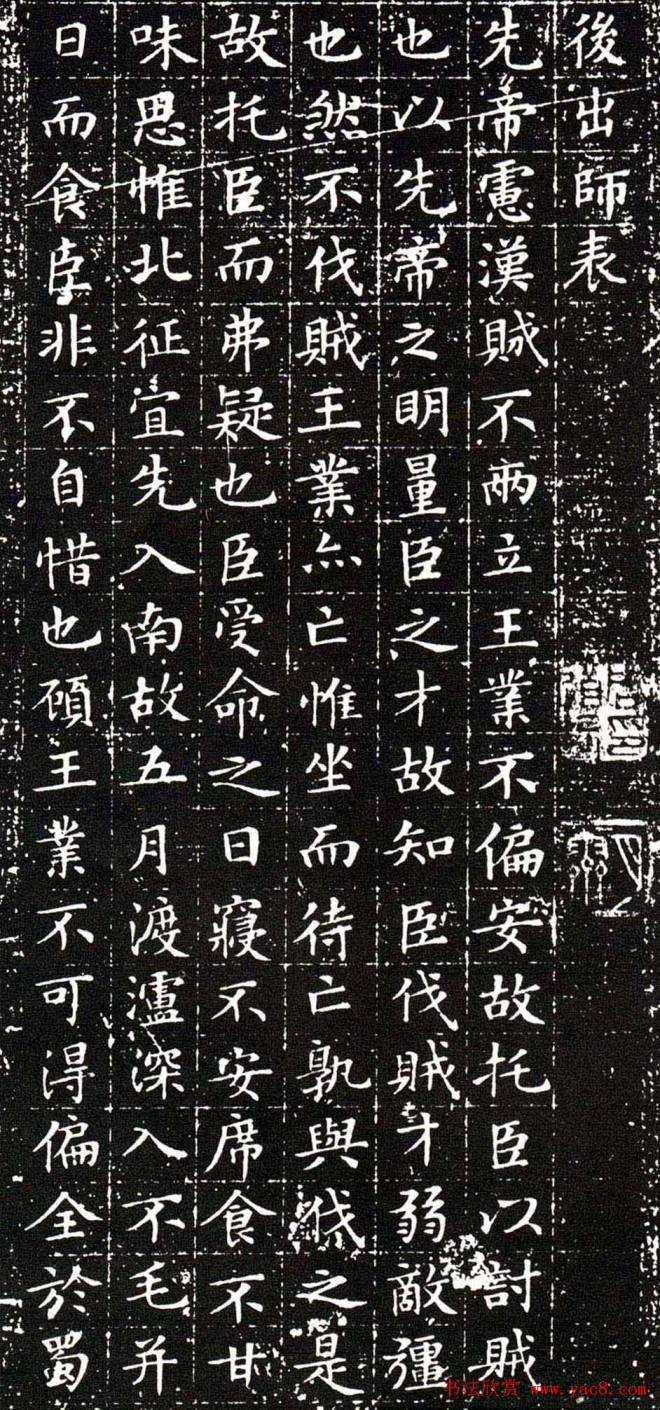 後出師表
先帝慮漢賊不兩立王業不偏安故托臣以討賊
也以先帝之明量臣之才故知臣伐賊才弱敵彊
也然不伐賊王業亦亡惟坐而待亡孰與伐之是
故托臣而弗疑也臣受命之日寢不安席食不甘
味思惟北征宜先入南故五月渡瀘深入不毛并
日而食臣非不自惜也顧王業不可得偏全於蜀
书法欣赏 www.yac8.com